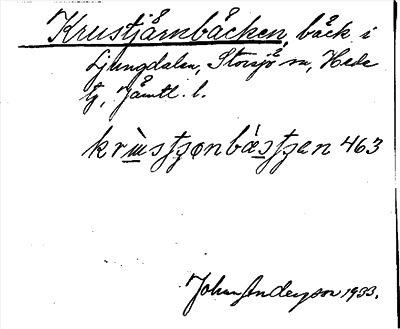 Krustjärnbäcken, bäck i
Ljungdalen, Storsjö sn, Hede
tg, Jämtl. l.
463
Johan Anderson 1933.